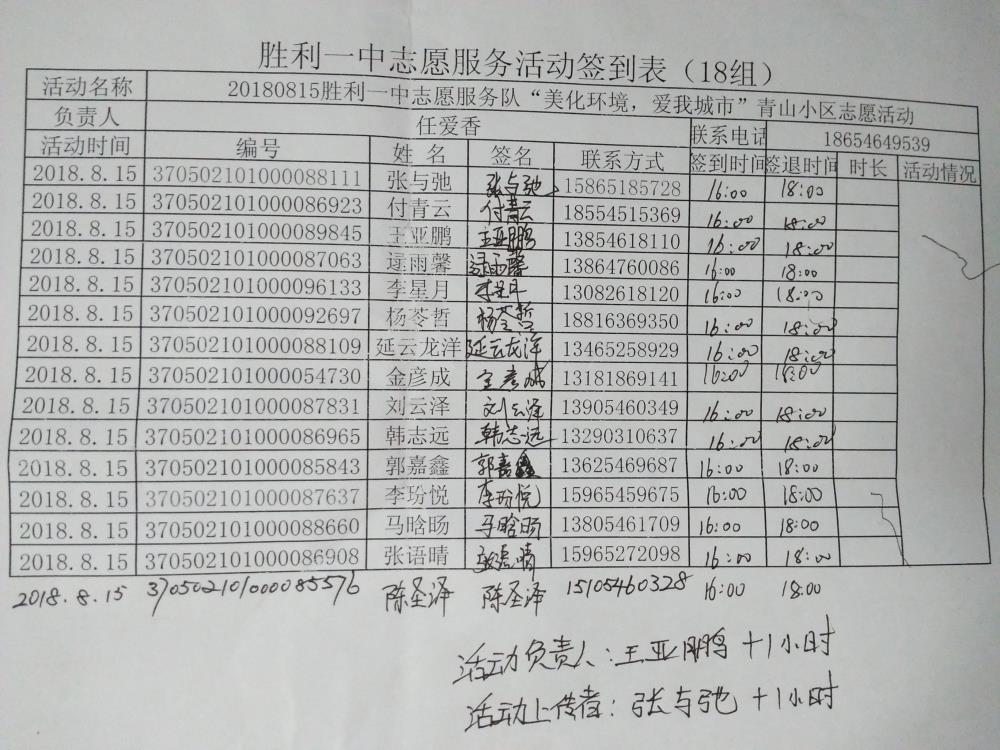 胜利一中志愿服务活动签到表（18组）
活动名称 20180815胜利一中志愿服务队“美化环境，爱我城市”青山小区志愿活动
负责人 任爱香 联系电话 18654649539
活动时间 编号 姓 名 签名 联系方式 签到时间 签退时间 时长 活动情况
2018.8.15 370502101000088111 张与弛 张与弛 15865185728 16:00 18:00
2018.8.15 370502101000086923 付青云 付青云 18554515369 16:00 18:00
2018.8.15 370502101000089845 王亚鹏 王亚鹏 13854618110 16:00 18:00
2018.8.15 370502101000087063 逯雨馨 逯雨馨 13864760086 16:00 18:00
2018.8.15 370502101000096133 李星月 李星月 13082618120 16:00 18:00
2018.8.15 370502101000092697 杨苓哲 杨苓哲 18816369350 16:00 18:00
2018.8.15 370502101000088109 延云龙洋 延云龙洋 13465258929 16:00 18:00
2018.8.15 370502101000054730 金彦成 金彦成 13181869141 16:00 18:00
2018.8.15 370502101000087831 刘云泽 刘云泽 13905460349 16:00 18:00
2018.8.15 370502101000086965 韩志远 韩志远 13290310637 16:00 18:00
2018.8.15 370502101000085843 郭嘉鑫 郭嘉鑫 13625469687 16:00 18:00
2018.8.15 370502101000087637 李玢悦 李玢悦 15965459675 16:00 18:00
2018.8.15 370502101000088660 马晗旸 马晗旸 13805461709 16:00 18:00
2018.8.15 370502101000086908 张语晴 张语晴 15965272098 16:00 18:00
2018.8.15 370502101000085576 陈圣泽 陈圣泽 15105460328 16:00 18:00
活动负责人：王亚鹏 +1小时
活动上传者：张与弛 +1小时